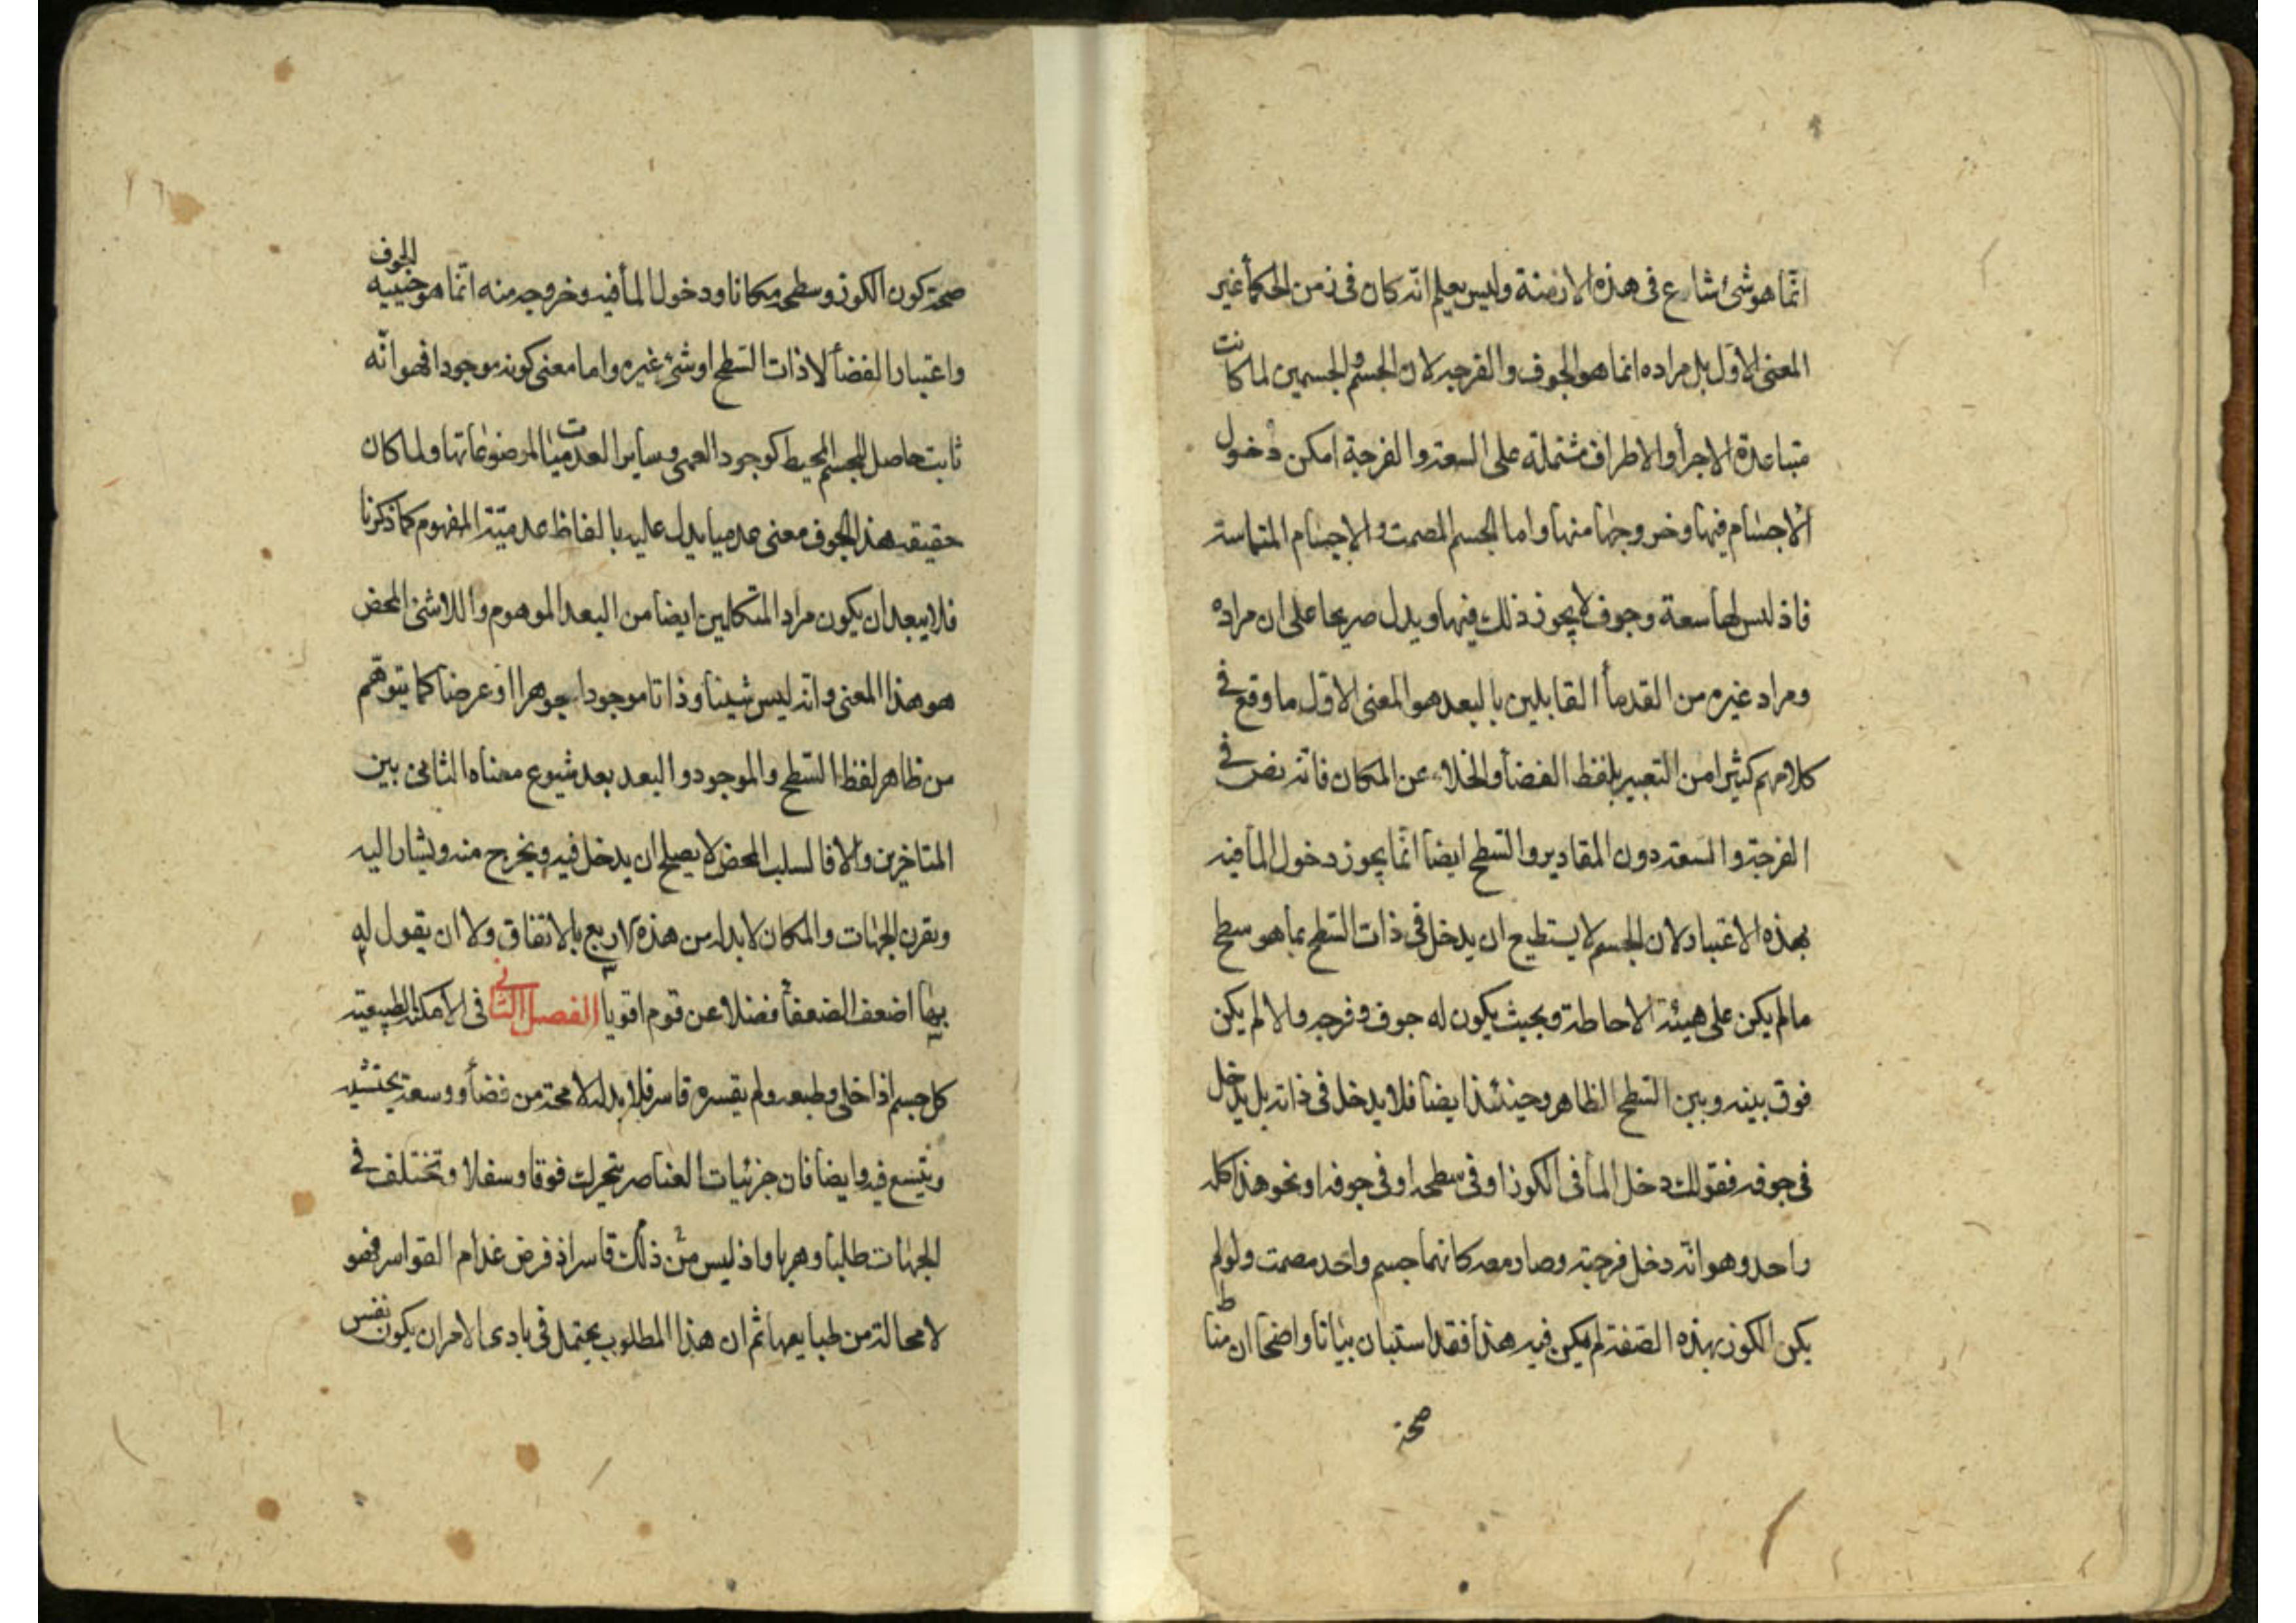 انّما هو شیٔ شایع فی هذه الازمنة ولیس یعلم انّه کان فی زمن الحکمأ غیر
المعنی الاوّل بل مراده انما هو الجوف والفرجه لان الجسم والجسمین لما کانت
متباعدة الاجزأ والاطراف مشتملة علی السعه والفرجة امکن دخول
الاجسام فیها وخروجها منها واما الجسم المصمت والاجسام المتماسه
فاذ لیس لها سعة وجوف لا یجوز ذلک فیها ویدل صریحا علی ان مراده
ومراد غیره من القدمأ القایلین بالبعد هو المعنی الاوّل ما وقع فی
کلامهم کثیرا من التعبیر بلفظ الفضأ والخلاء عن المکان فانه نص فی
الفرجة والسعه دون المقادیر والسّطح ایضا انّما یجوز دخول المأ فیه
بهذه الاعتبار لان الجسم لا یستطیع ان یدخل فی ذات السّطح بما هو سطح
ما لم یکن علی هیئة الاحاطة وبحیث یکون له جوف وفرجه والا لم یکن
فرق بینه وبین السّطح الظاهر وحینئذ ایضا فلا یدخل فی ذاته بل یدخل
فی جوفه فقولک دخل المأ فی الکوز او فی سطحه او فی جوفه او نحو هذا کله
واحد وهو انّه دخل فرجته وصار معه کانهما جسم واحد مصمت ولو لم
یکن الکوز بهذه الصّفة لم یکن فیه هذا فقد استبان بیانا واضحا ان مناط
صحة
صحة کون الکوز وسطحه مکانا ودخول المأ فیه وخروجه منه انّما هو حیثیه الجوف
واعتبار الفضأ لا ذات السّطح او شیٔ غیره واما معنی کونه موجودا فهو انّه
ثابت حاصل للجسم المحیط کوجود العمی وسایر العدمیات لموضوعاتها ولما کان
حقیقه هذا الجوف معنی عدمیا یدل علیه بالفاظ عدمیّة المفهوم کما ذکرنا
فلا یبعد ان یکون مراد المتکلمین ایضا من البعد الموهوم واللاشیٔ المحض
هو هذا المعنی وانه لیس شیئا وذاتا موجودا جوهرا او عرضا کما یتوهّم
من ظاهر لفظ السّطح والموجود والبعد بعد شیوع معناه الثانی بین
المتاخرین والا فالسلب المحض لا یصلح ان یدخل فیه ویخرج منه ویشار الیه
وبقرن الجهات والمکان لا بدله من هذه الاربع بالاتفاق ولا ان یقول له
بهما اضعف الضعفأ فضلا عن قوم اقویأ الفصل الثانی فی الامکنة الطبیعیّة
کل جسم اذا خلی وطبعه ولم یقسره قاسر فلا بد له لا محة من فضأ ووسعة یحتشیه
ویتسع فیه وایضا فان جزئیات العناصر تتحرک فوقا وسفلا وتختلف فی
الجهات طلبا وهربا واذ لیس من ذلک قاسر اذ فرض عدام القواسر فهو
لا محالة من طبایعها ثم ان هذا المطلوب یحتمل فی بادی الامر ان یکون نفس